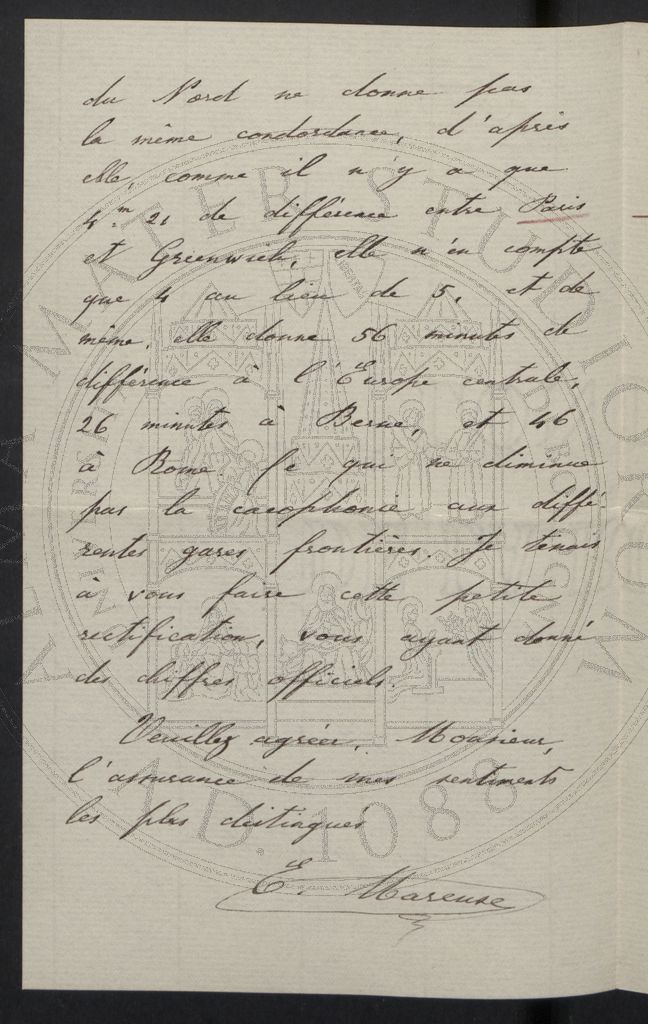 du Nord ne donne pas
la même condordance, d'après
elle, comme il n'y a que
4.m 21 de différence entre Paris
et Greenwich, elle n'en compte
que 4 au lieu de 5, et de
même, elle donne 56 minutes de
différence à l'Europe centrale,
26 minutes à Berne, et 46
à Rome. Ce qui ne diminue
pas la cacophonie aux diffé-
rentes gares frontières. Je tenais
à vous faire cette petite
rectification, vous ayant donné
des chiffres officiels.
Veuillez agréer, Monsieur,
l'assurance de mes sentiments
les plus distingués
E. Mareuse
ALMA MATER STUDIORUM
A.D. 1088